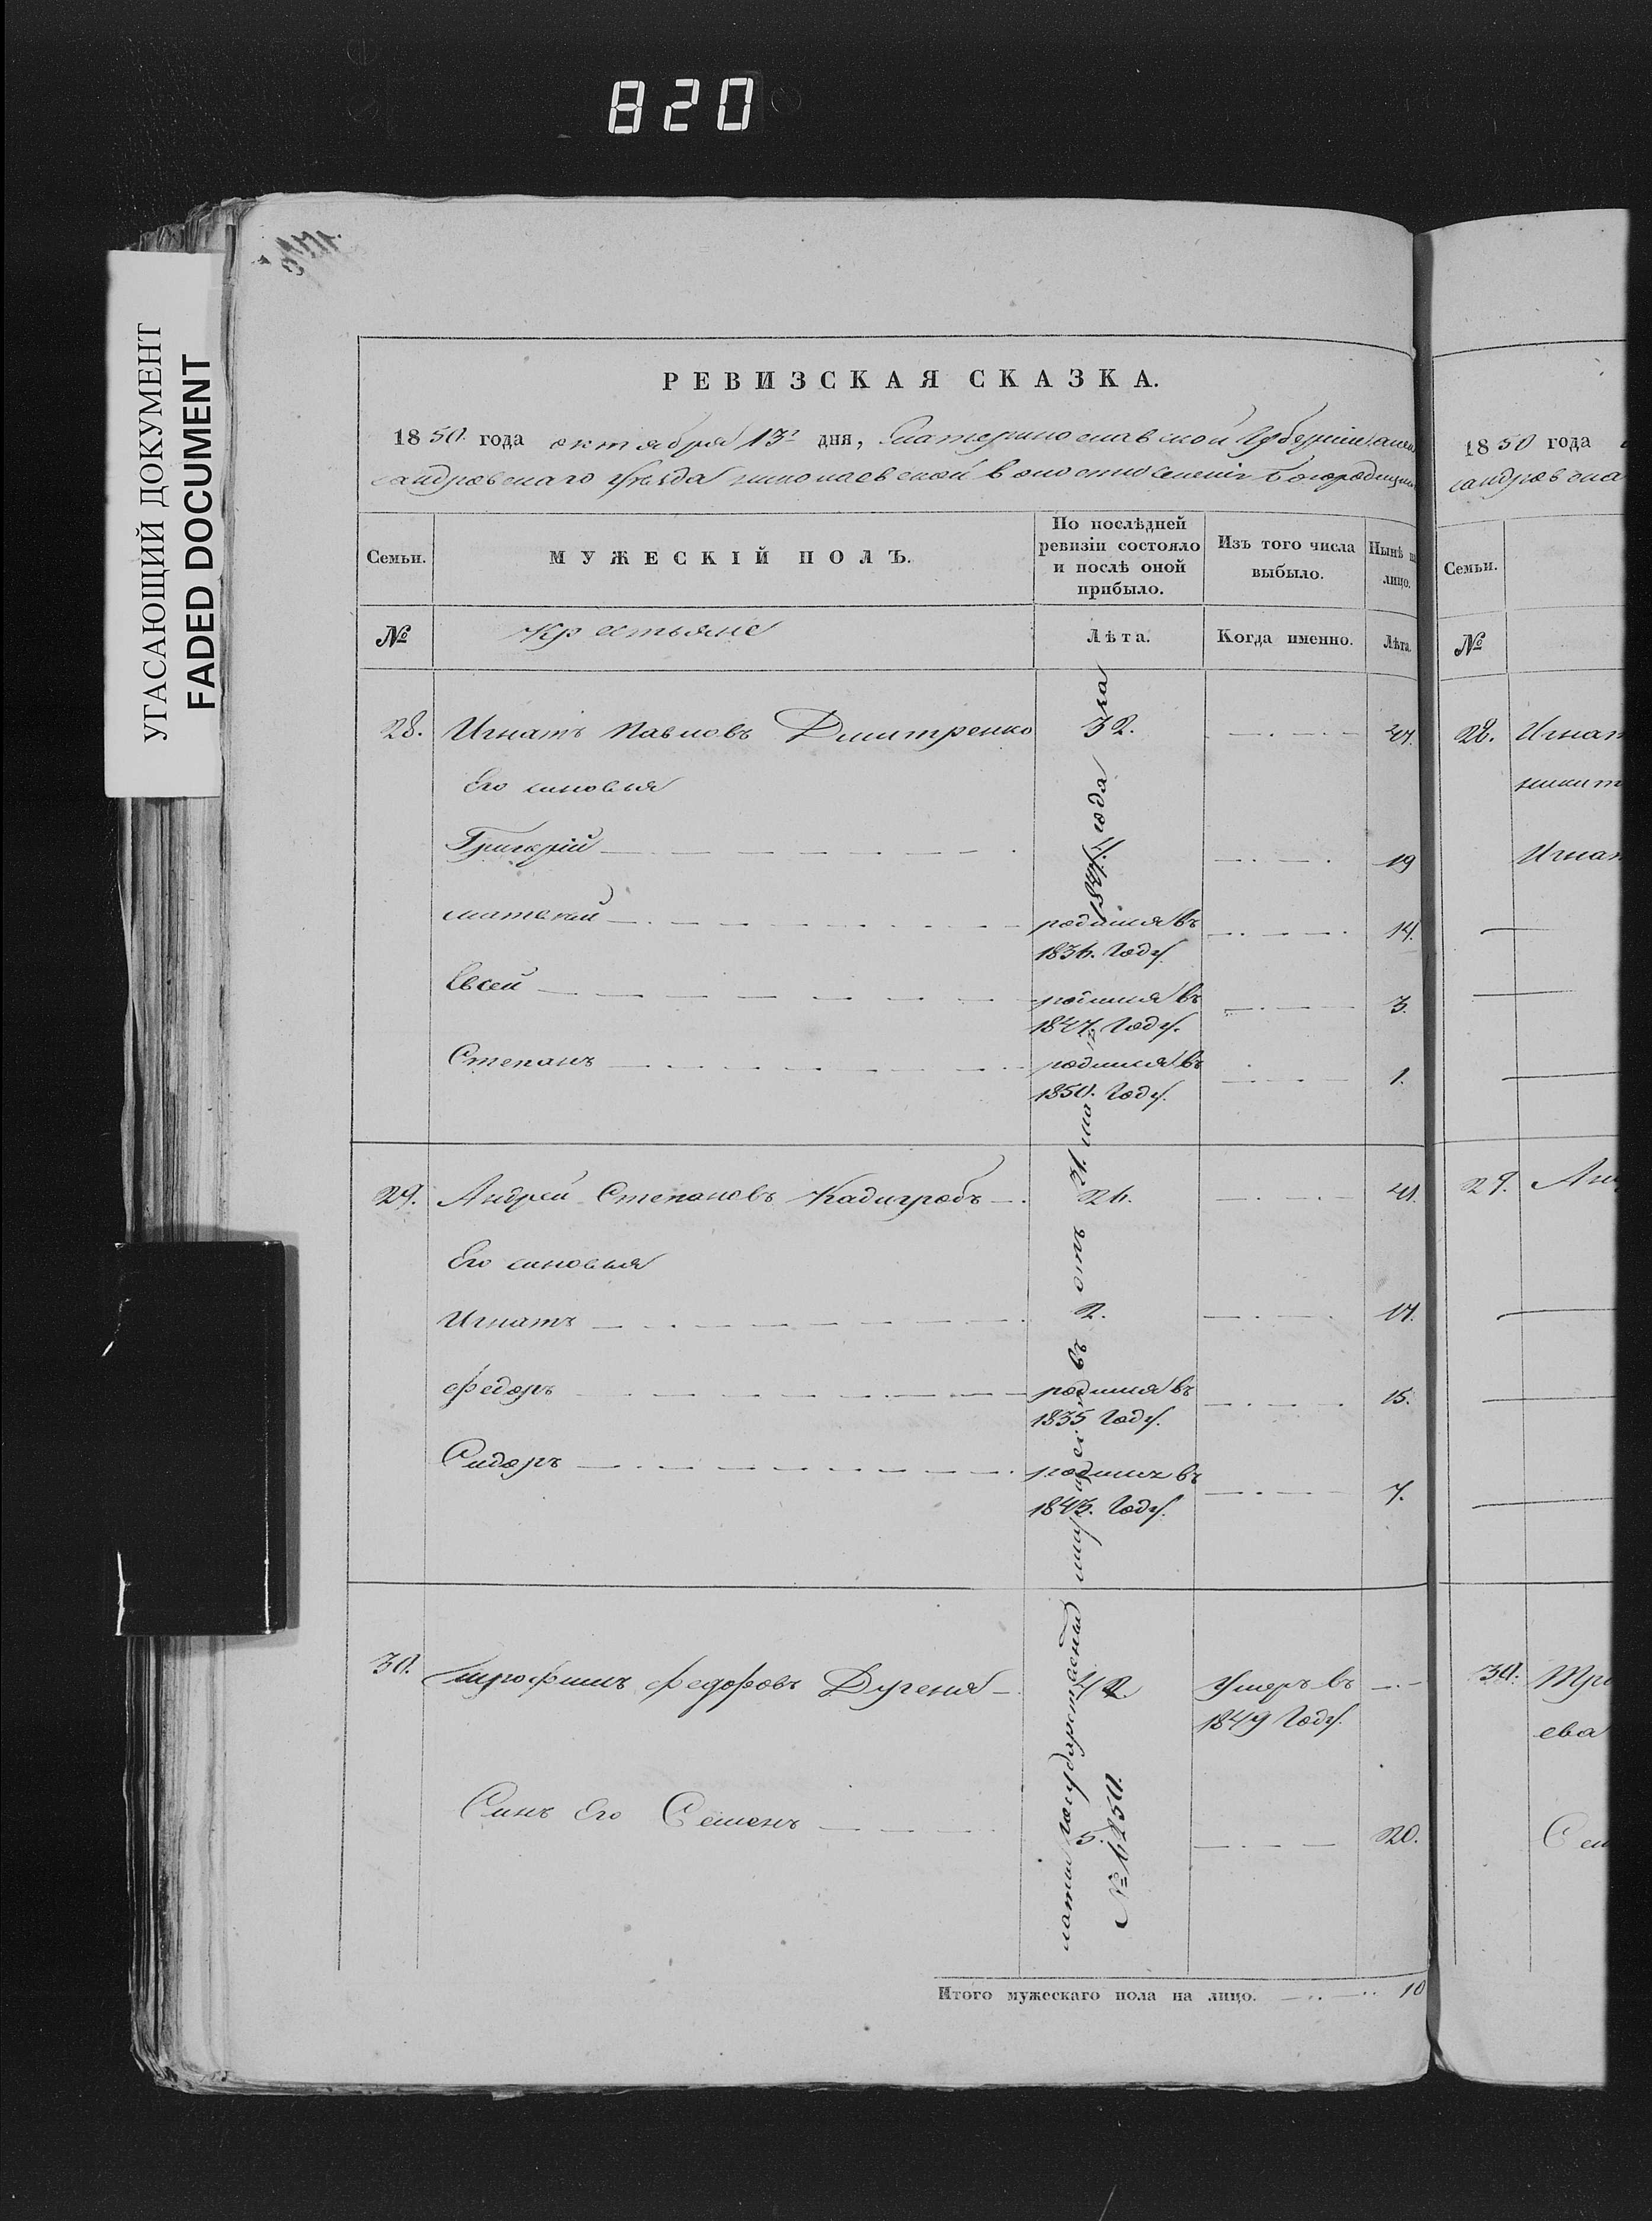 820
УГАСАЮЩИЙ ДОКУМЕНТ
FADED DOCUMENT
РЕВИЗСКАЯ СКАЗКА.
1850. года октября 13 дня, Екатеринославской Губерніи Алек
сандровскаго Уѣзда николаевской волости селенія Богородицка
Семьи.
МУЖЕСКІЙ ПОЛЪ.
По послѣдней ревизіи состояло и послѣ оной прибыло.
Изъ того числа выбыло.
Нынѣ на лицо.
№
Крестьяне
Лѣта.
Когда именно.
Лѣта.
28. Игнатъ Павловъ Дмитренко 32. 47.
Его синовья
Григорій 19
матвей родился въ 14.
1836. Году.
Евсей родился въ 3.
1847. Году.
Степанъ родился въ 1.
1850. Году.
29. Андрей Степановъ Кадигробъ 26. 41.
Его синовья
Игнатъ 2. 17.
федоръ родился въ 15.
1835 Году.
Сидоръ родился въ 7.
1843. Году.
30. трофимъ федоровъ Дугеня 42 Умеръ въ
1849 Году.
Синъ Его Семенъ 5. 20.
Итого мужескаго пола на лицо. 10
латы государст
въ отъ 21. ма
1847. года
№ 6250.
1850 года
сандровска
Семьи.
№
28. Игнат
никит
Игнат
29. Анд
30. Тро
ева
Сем